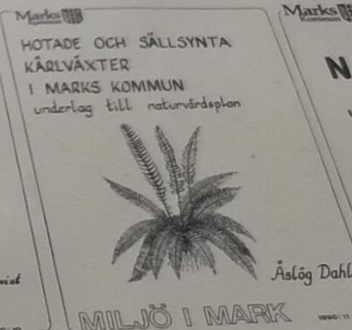 Marks
Kommun
HOTADE OCH SÄLLSYNTA
KÄRLVÄXTER
I MARKS KOMMUN
underlag till naturvårdsplan
Åslög Dahl
MILJÖ I MARK
Marks
Kommun
N